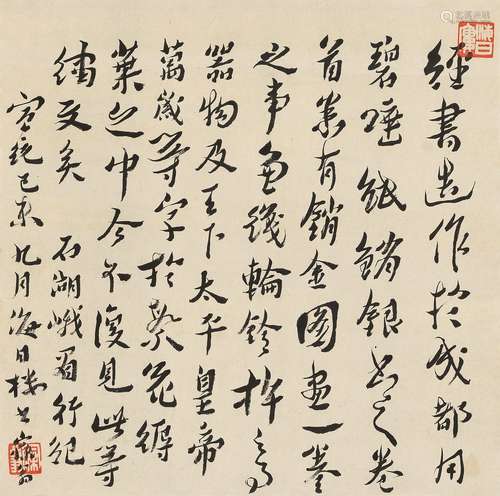 經書造作於成都用
碧硾紙銷銀書之卷
首悉有銷金圖畫一卷
之事多織輪鈴杵之
器物及天下太平皇帝
萬歲等字於繁花縟
葉之中今不復見此等
繡文矣 石湖峨眉行紀
宣統己未九月海日樓書 寐叟